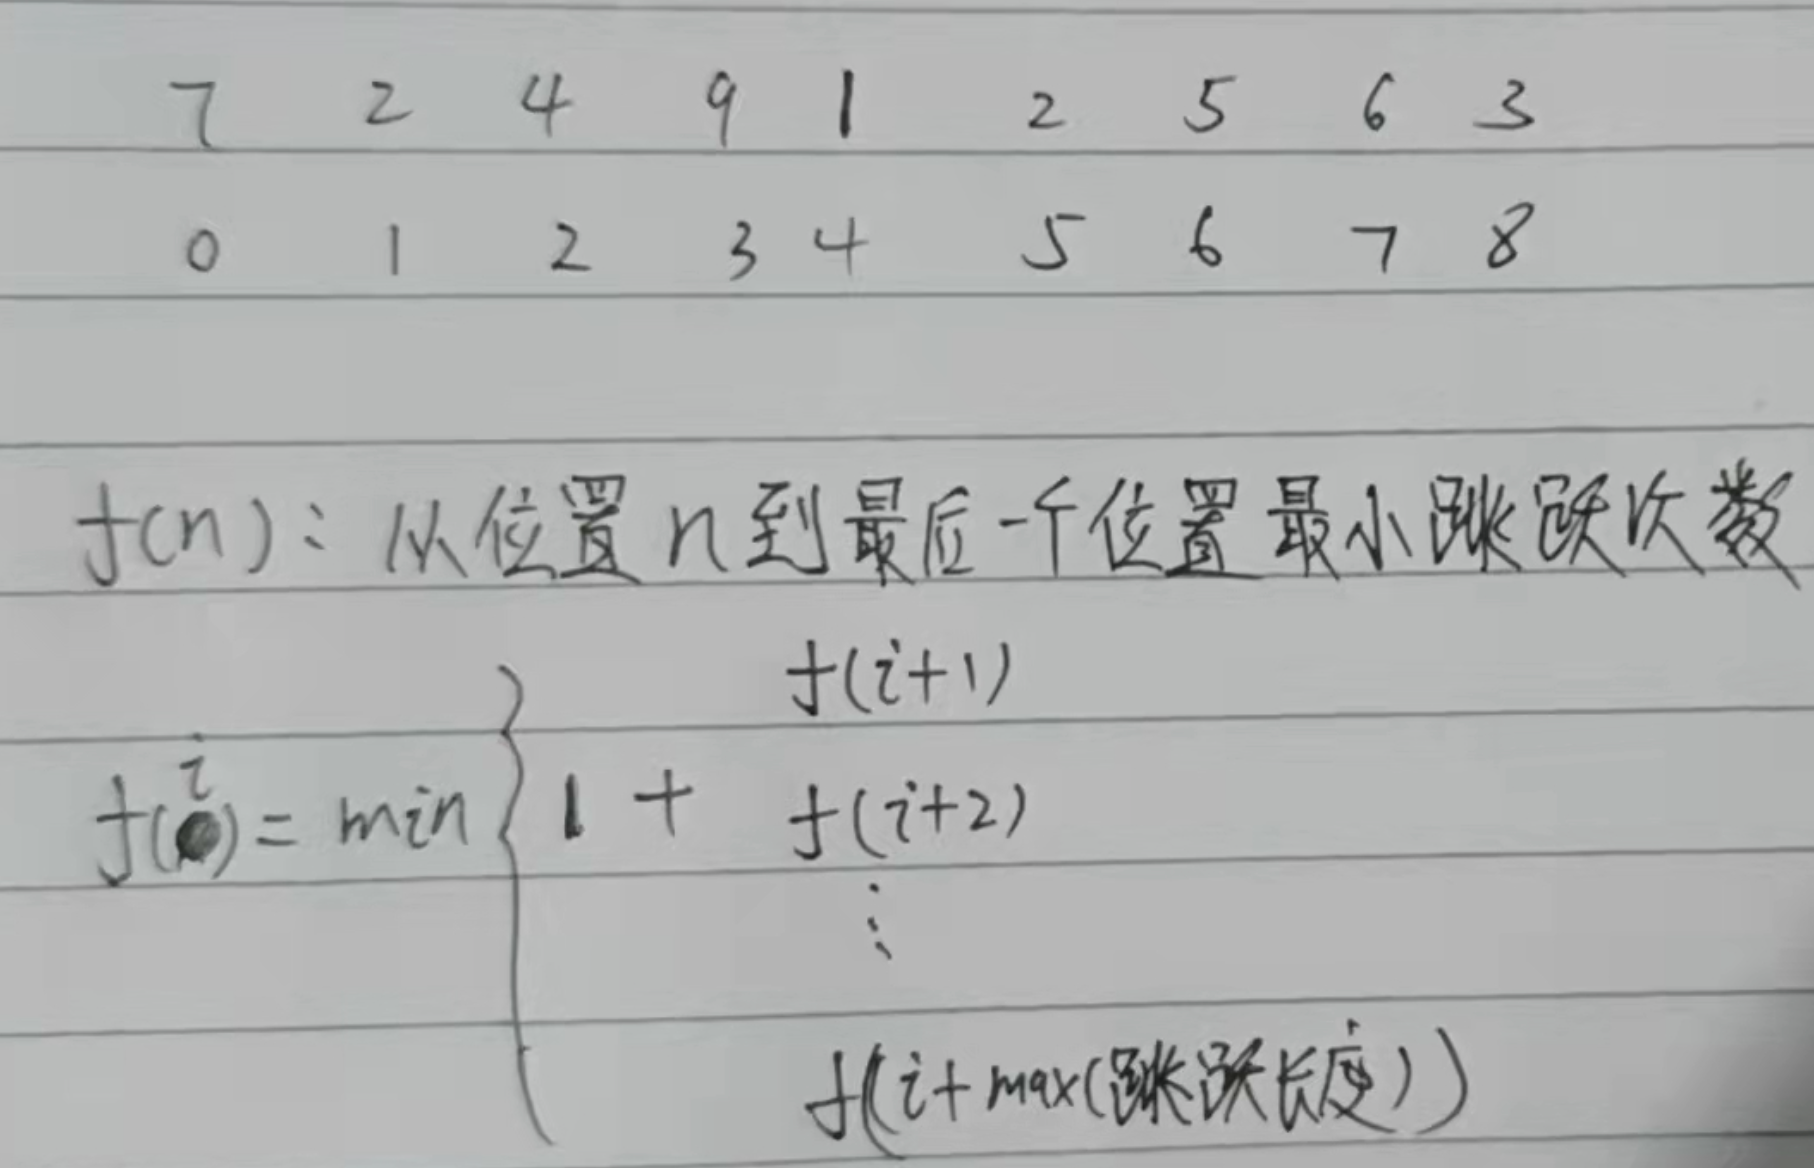 7 2 4 9 1 2 5 6 3
0 1 2 3 4 5 6 7 8
f(n): 从位置n到最后一个位置最小跳跃次数
f(i+1)
f(i) = min { 1 + f(i+2)
⋮
f(i+max(跳跃长度))